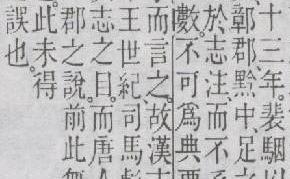 十三年。裴駰以
鄣郡、黔中、足之
於志注。而不
數。不可爲典要
而言之。故漢志
王世紀、司馬彪
志之日。而唐人
郡之說。前此無
此未得
誤也。